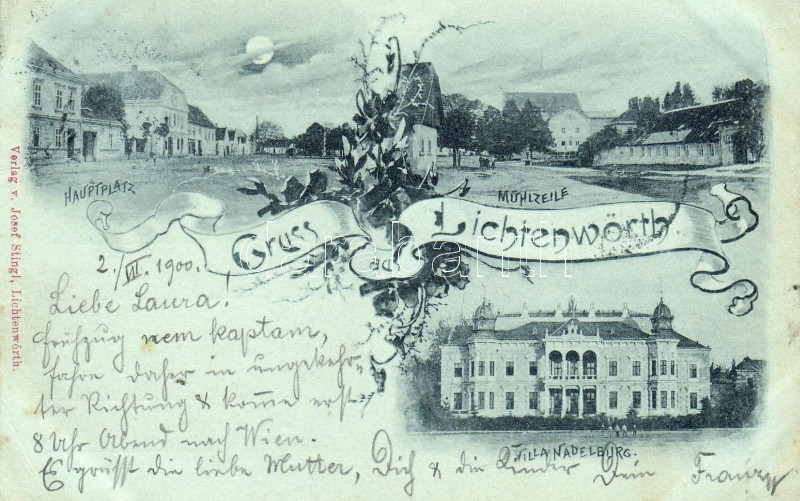 HAUPTPLATZ
MÜHLZEILE
Gruss aus Lichtenwörth.
2./VII. 1900.
Liebe Laura!
Frühzug nem kaptam,
fahre daher in umgekehr-
ter Richtung & komme erst
8 Uhr Abend nach Wien.
Es grüsst die liebe Mutter, Dich & die Kinder Dein
VILLA NADELBURG.
Verlag v. Josef Stingl, Lichtenwörth.
darabanth